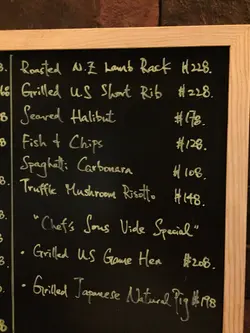 Roasted N.Z Lamb Rack #228.
Grilled US Short Rib #228.
Seared Halibut #178.
Fish & Chips #128.
Spaghetti Carbonara #108.
Truffle Mushroom Risotto #148.
"Chef's Sous Vide Special"
• Grilled US Game Hen #208.
• Grilled Japanese Natural Pig #198